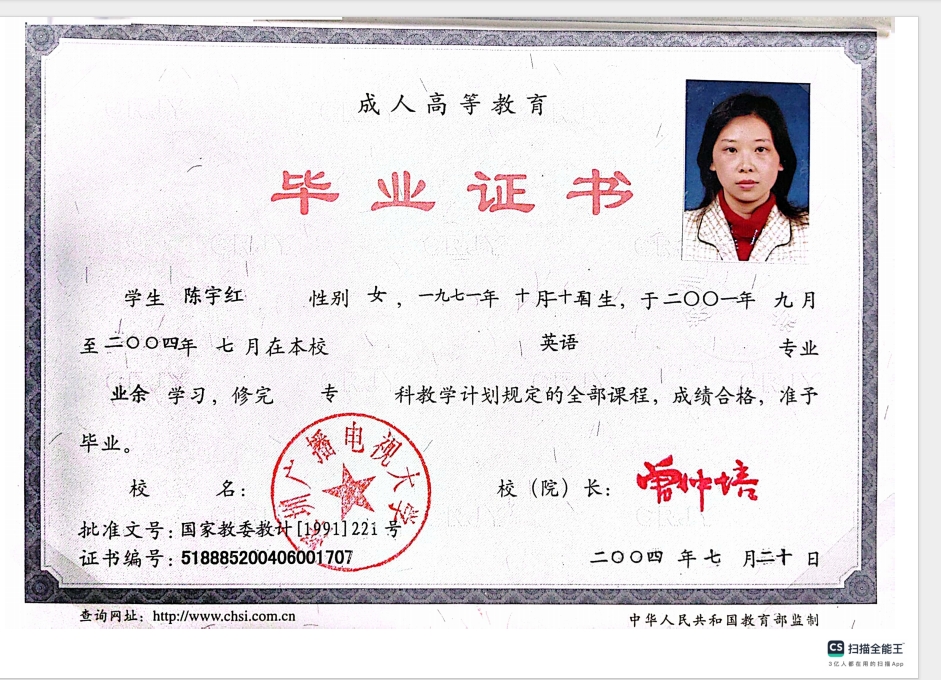 成人高等教育
毕业证书
学生 陈宇红 性别 女，一九七一年 十月十五日生，于二〇〇一年 九月
至二〇〇四年 七月在本校 英语 专业
业余 学习，修完 专 科教学计划规定的全部课程，成绩合格，准予
毕业。
深圳广播电视大学
校 名： 校（院）长：曾仲培
批准文号：国家教委教计[1991]221 号
证书编号：518885200406001707
二〇〇四 年七 月二十 日
查询网址：http://www.chsi.com.cn
中华人民共和国教育部监制
CS 扫描全能王
3亿人都在用的扫描App